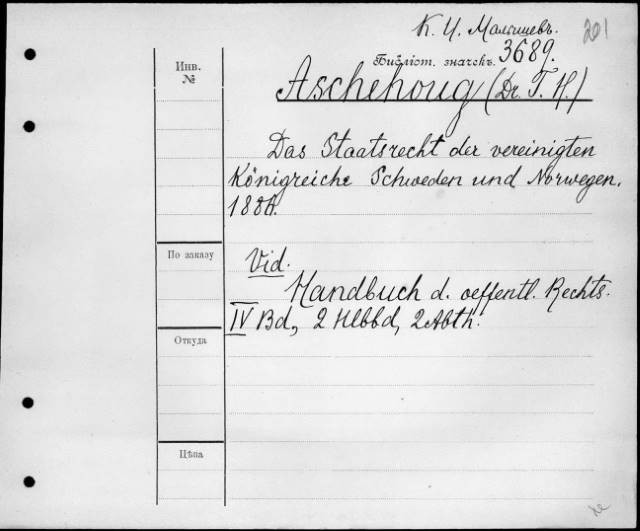 К. И. Малышевъ.
201
Инв.
№
Библіот. значекъ. 3689.
Aschehoug (Dr. T. H.)
Das Staatsrecht der vereinigten
Königreiche Schweden und Norwegen.
По заказу
Vid.
Handbuch d. oeffentl. Rechts.
IV Bd, 2 Hlbbd, 2 Abth.
Откуда
Цѣна